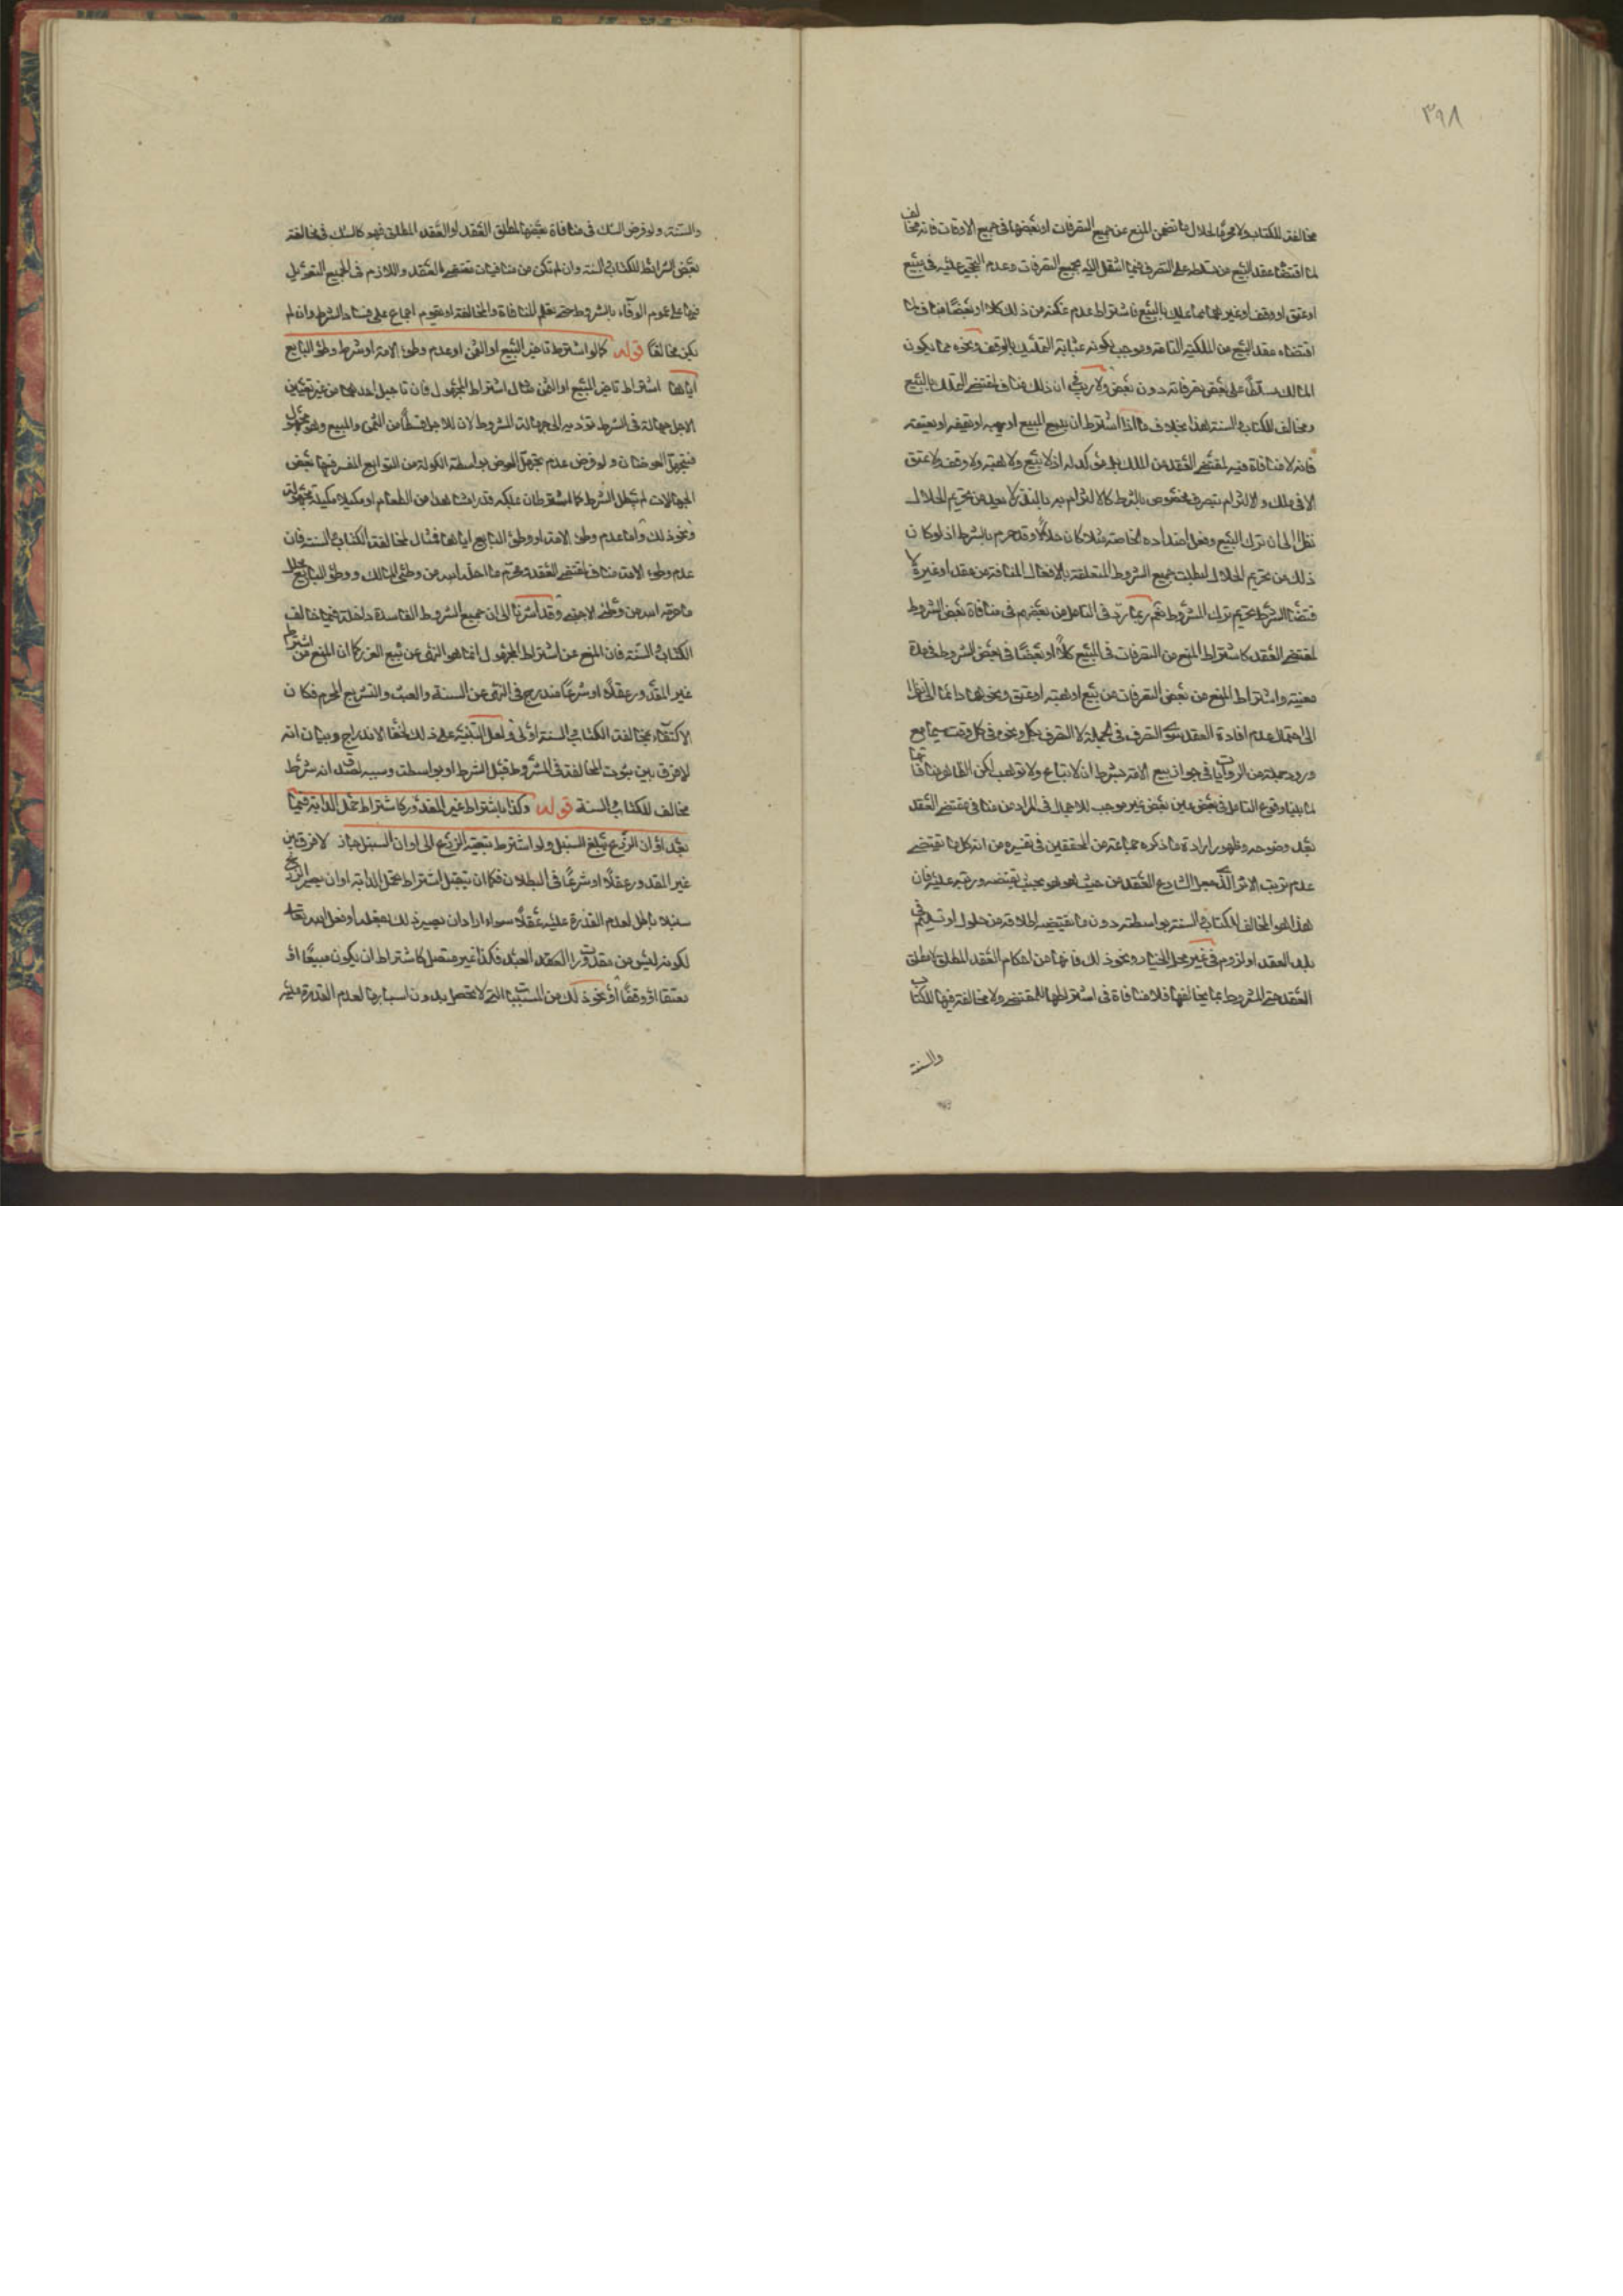 ٣٩٨
مخالفته للكتاب ولا محرّما لحلال ما تضمن المنع عن جميع التصرفات او بعضها فى جميع الاوقات فانه مخالف
لما اقتضاه عقد البيع من تسلطه على التصرف فيما انتقل اليه بجميع التصرفات وعدم التحجير عليه فى بيع
او عتق او وقف او غيرهما مما عليه بالبيع فاشتراط عدم تمكنه من ذلك كلا او بعضا مناف لما
اقتضاه عقد البيع من الملكية التامة وموجب لكونه بمثابة التمليك بالوقف ونحوه مما يكون
المالك مسلطا على بعض تصرفاته دون بعض ولا ريب فى ان ذلك مناف لمقتضى التملك بالبيع
ومخالف للكتاب والسنة هذا بخلاف ما اذا اشترط ان يبيع المبيع او يهبه او يقفه او يعتقه
فانه لا منافاة فيه لمقتضى العقد من الملك بل مؤكد له اذ لا بيع ولا هبة ولا وقف ولا عتق
الا فى ملك والالتزام بتصرف مخصوص بالشرط كالالتزام به بالنذر لا يعد من تحريم الحلال
نظرا الى ان ترك البيع وفعل اضداده الخاصة مثلا كان حلالا وقد حرم بالشرط اذ لو كان
ذلك من تحريم الحلال لبطلت جميع الشروط المتعلقة بالافعال المنافية من عقد او غيره لا
قتضاء الشرط تحريم ترك المشروط نعم ربما تردد فى التامل من بعضهم فى منافاة بعض الشروط
لمقتضى العقد كاشتراط المنع من التصرفات فى البيع كلا او بعضا فى بعض الشروط فى مدة
معينة واشتراط المنع من بعض التصرفات من بيع او هبة او عتق ونحوها دائما الى نظرا
الى احتمال عدم افادة العقد سوى التصرف فى الجملة لا التصرف بكل ونحوه فى كل وقت سيما مع
ورود جملة من الروايات فى جواز بيع الامة بشرط ان لا تباع ولا توهب لكن الظاهر منافاتها
لما بلينا وقوع التامل فى بعض من بعض غير موجب للاجمال فى المراد من منافى مقتضى العقد
بعد وضوحه وظهور ارادة ما ذكره جماعة من المحققين فى تفسيره من انه كل ما يقتضى
عدم ترتب الاثر الذى جعل الشارع العقد من حيث هو هو بحيث يقتضيه ورتبه عليه فان
هذا هو المخالف للكتاب والسنة بواسطته دون ما يقتضيه اطلاقه من حلول او تسليم فى
بلد العقد او لزوم فى غير محل الخيار ونحو ذلك فانها من احكام العقد المطلق لا مطلق
العقد حتى المشروط بما يخالفها فلا منافاة فى اشتراطها للمقتضى ولا مخالفة فيها للكتاب
والسنة
والسنة ولو فرض الشك فى منافاة بعضها لمطلق العقد او العقد المطلق فهو كالشك فى مخالفة
بعض الشرائط للكتاب والسنة وان لم تكن من منافيات مقتضى العقد واللازم فى الجميع التعويل
فيها على عموم الوفاء بالشروط حتى يعلم المنافاة والمخالفة او يقوم اجماع على فساد الشرط وان لم
يكن مخالفا قوله كما لو اشترط تاخير المبيع او الثمن او عدم وطئ الامة او شرط وطئ البايع
اياها اشتراط تاخير المبيع او الثمن مثال اشتراط المجهول فان تاجيل احدهما من غير تعيين
الاجل جهالة فى الشرط تؤديه الى جهالة المشروط لان للاجل قسطا من الثمن والمبيع وهو مجهول
فيتجهل العوضان ولو فرض عدم تجهل العوض بواسطة الكون من التوابع المغتفر فيها بعض
الجهالات لم يبطل الشرط كما اشترطان يملكه قدرا شاهدا من الطعام او مكيلا بمكيلة مجهولة
ونحو ذلك واما عدم وطئ الامة او وطئ البايع اياها فمثال لمخالفة الكتاب والسنة فان
عدم وطئ الامة مناف لمقتضى العقد محرّم ما احل الله من وطئ المالك ووطئ البايع محلل
ما حرمه الله من وطئ الاجنبى وقد اشرنا الى ان جميع الشروط الفاسدة داخلة فيما خالف
الكتاب والسنة فان المنع عن اشتراط المجهول انما هو النهى عن بيع الغرر كما ان المنع من اشتراط
غير المقدور عقلا او شرعا مندرج فى النهى عن السفه والعبث والتشريع المحرم فكان
الاكتفاء بمخالفة الكتاب والسنة اولى ولعل التنبيه على ذلك لخفاء الاندراج وبيان انه
لا فرق بين ثبوت المخالفة فى المشروط قبل الشرط او بواسطته وسببه لصدق انه شرط
مخالف للكتاب والسنة قوله وكذا باشتراط غير المقدور كاشتراط حمل الدابة فيما
بعد او ان الزرع يبلغ السنبل ولو اشترط تبقية الزرع الى اوان السنبل جاز لا فرق بين
غير المقدور عقلا او شرعا فى البطلان فكما ان تبطل اشتراط حمل الدابة او ان يصير الزرع
سنبلا باطل لعدم القدرة عليه عقلا سواء ارادان يصير ذلك بفعله او بفعل الله تعالى
لكونه ليس من مقدورات العقد العبد فكذا غير متصل كاشتراط ان يكون مبيعا او
معتقا او وقفا او نحو ذلك من المسببات التى لا تحصل بدون اسبابها لعدم القدرة عليه